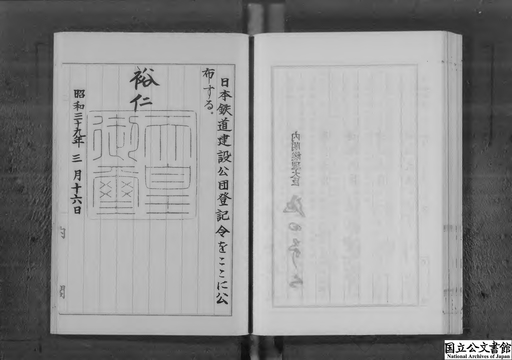 日本鉄道建設公団登記令をここに公
布する。
裕仁
天皇御璽
昭和三十九年三月十六日
国立公文書館
National Archives of Japan